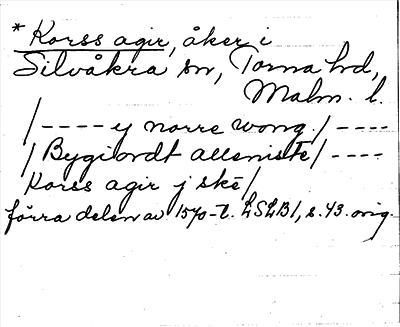 * Korss agir, åker i
Silvåkra sn, Torna hd,
Malm. l.
/---- y norre wong./ ----
/ Bygiordt alleniste/ ----
Korss agir j skē/
förra delen av 1570-t. LSLB1, s. 43. orig.